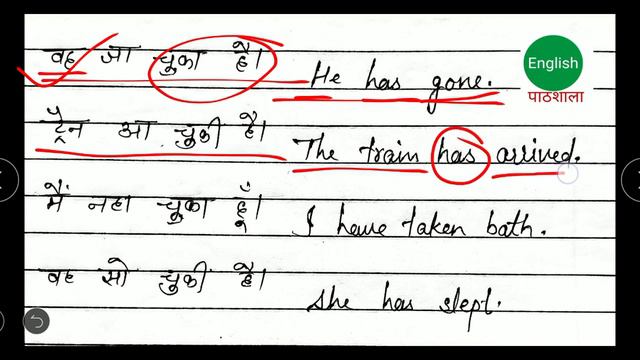 वह जा चुका है। He has gone.
English
पाठशाला
ट्रैन आ चुकी है। The train has arrived.
मैं नहा चुका हूँ। I have taken bath.
वह सो चुकी है। She has slept.